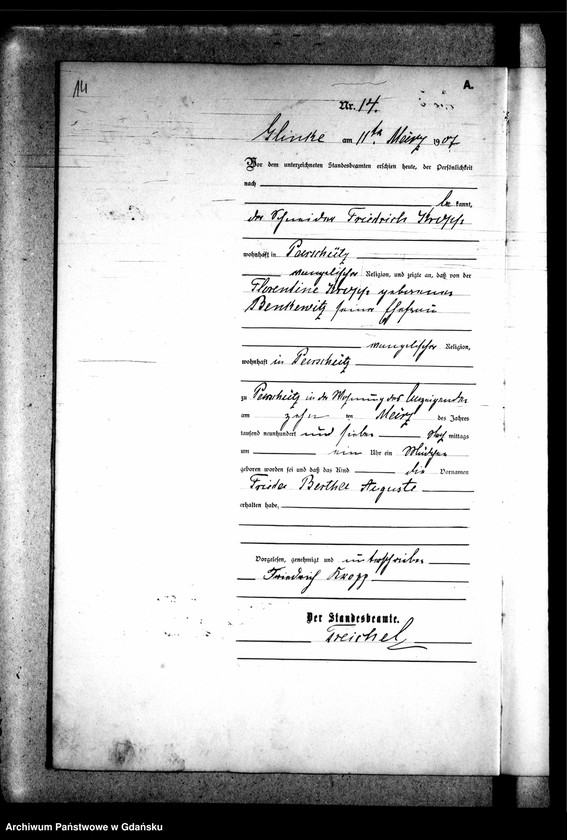 14
A.
Nr. 14.
Glinke am 11ten März 1907
Vor dem unterzeichneten Standesbeamten erschien heute, der Persönlichkeit
nach
be kannt,
der Schneider Friedrich Kropp
wohnhaft in Parschütz
evangelischer Religion, und zeigte an, daß von der
Florentine Kropp geborenen
Benkewitz seiner Ehefrau
evangelischer Religion,
wohnhaft in Parschütz
zu Parschütz in der Wohnung des Anzeigenden
am zehn ten März des Jahres
tausend neunhundert und sieben mittags
um ein Uhr ein Mädchen
geboren worden sei und daß das Kind die Vornamen
Frieda Bertha Auguste
erhalten habe,
Vorgelesen, genehmigt und unterschrieben
Friedrich Kropp
Der Standesbeamte.
Treichel
Archiwum Państwowe w Gdańsku